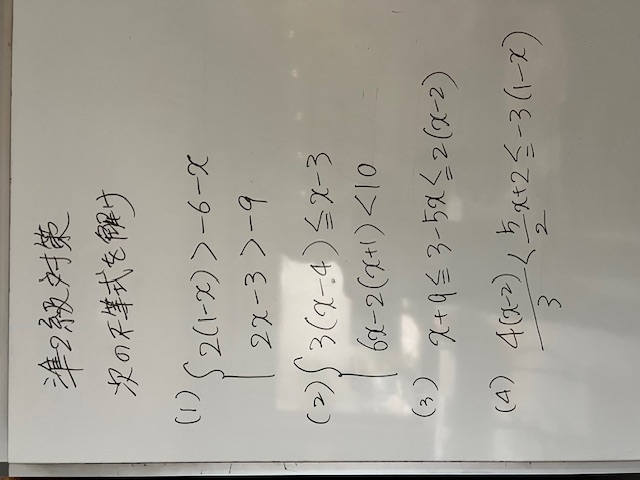 準2級対策
次の不等式を解け
(1) { 2(1-x)>-6-x
2x-3>-9
(2) { 3(x-4)≦x-3
6x-2(x+1)<10
(3) x+9≦3-5x≦2(x-2)
(4) 4(x-2)/3 < 5/2x+2≦-3(1-x)